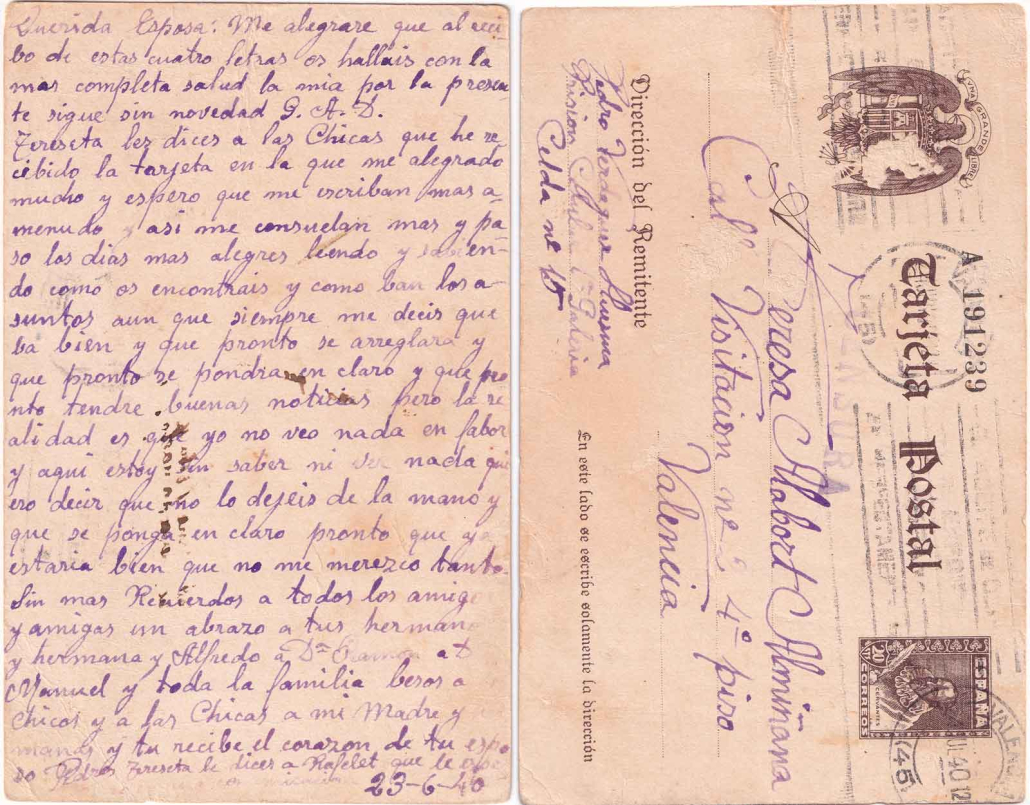 Querida Esposa: Me alegrare que al reci
bo de estas cuatro letras os hallais con la
mas completa salud la mia por la presen
te sigue sin novedad G. A. D.
Tereseta les dices a las Chicas que he re
cibido la tarjeta en la que me alegrado
mucho y espero que me escriban mas a
menudo y asi me consuelan mas y pa
so los dias mas alegres leendo y sabien-
do como os encontrais y como ban los a-
suntos aun que siempre me decis que
ba bien y que pronto se arreglara y
que pronto se pondra en claro y que pro
nto tendre buenas noticias pero la re
alidad es que yo no veo nada en fabor
y aqui estoy sin saber ni ver nada qui
ero decir que no lo dejeis de la mano y
que se ponga en claro pronto que ya
estaria bien que no me merezco tanto.
Sin mas Recuerdos a todos los amigo
y amigas un abrazo a tus hermano
y hermana y Alfredo a Dª Ramona a D
Manuel y toda la familia besos a
chicos y a las Chicas a mi Madre y
manos y tu recibe el corazon de tu espo
so Pedro Tereseta le dices a Rafelet que le
23-6-40
UNA GRANDE LIBRE
Tarjeta Postal
A 191239
ESPAÑA
20
CERVANTES
CORREOS
VALENCIA
(45)
JUL 40 12
Teresa Alabort Almiñana
Call Visitacion nº 4º piso
Valencia
Dirección del Remitente
Pedro Verdaguer
Prision
Celda nº 15
En este lado se escribe solamente la dirección